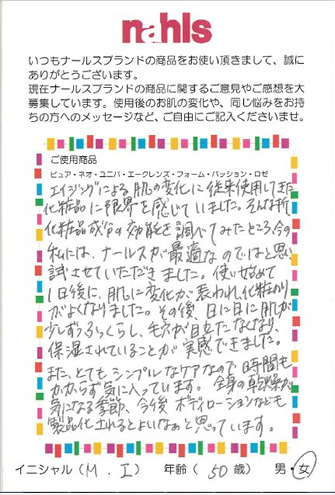 nahls
いつもナールスブランドの商品をお使い頂きまして、誠に
ありがとうございます。
現在ナールスブランドの商品に関するご意見やご感想を大
募集しています。使用後のお肌の変化や、同じ悩みをお持
ちの方へのメッセージなど、ご自由にご記入くださいませ。
ご使用商品
ピュア・ネオ・ユニバ・エークレンズ・フォーム・パッション・ロゼ
エイジングによる肌の変化に従来使用してきた
化粧品に限界を感じていました。そんな折
化粧品成分の効能を調べてみたところ、今の
私には、ナールスが最適なのではと思い
試させていただきました。使い始めて
1日後に、肌に変化が表われ、化粧のり
がよくなりました。その後、日に日に肌が
少しずつふっくらし、毛穴が目立たなくなり、
保湿されていることが実感できました。
また、とてもシンプルなケアなので時間も
かからず気に入っています。全身の乾燥が
気になる季節、今後ボディローションなども
製品化されるとよいなぁと思っています。
イニシャル（M . I） 年齢（ 50 歳） 男・女